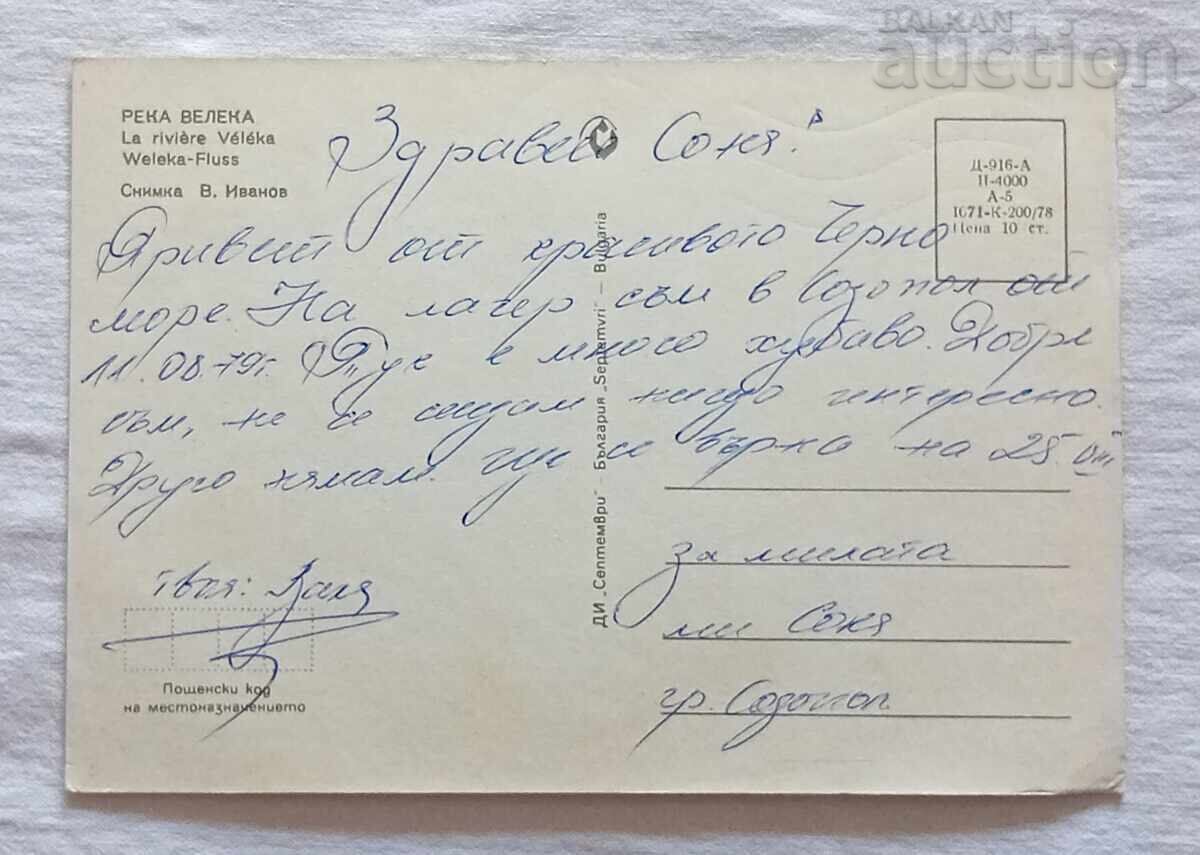 BALKAN
auction
РЕКА ВЕЛЕКА
La rivière Véléka
Weleka-Fluss
Снимка В. Иванов
Здравей Соня!
Д-916-А
II-4000
А-5
1071-К-200/78
Цена 10 ст.
Привет от красивото Черно
море. На лагер съм в Созопол от
11.08.79г. Тук е много хубаво. Добре
съм, не се сещам нищо интересно.
Друго нямам. Ще се върна на 25.VIII
ДИ „Септември" - България „Septemvri" - Bulgaria
твоя: Валя
за милата
ми Соня
гр. Созопол
Пощенски код
на местоназначението